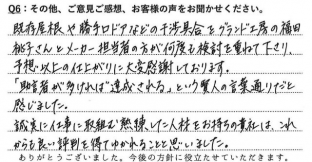 Q6：その他、ご意見ご感想、お客様の声をお聞かせください。
既存屋根や勝手口ドアなどの干渉具合をグランド工房の福田
桃子さんとメーカー担当者の方が何度も検討を重ねて下さり、
予想以上の仕上がりに大変感謝しております。
「助言者が多ければ"達成される"」という賢人の言葉通りだと
感じました。
誠実に仕事に取組む熟練した人材をお持ちの貴社は、これ
からも良い評判を得てゆかれることと思いました。
ありがとうございました。今後の方針に役立たせていただきます。